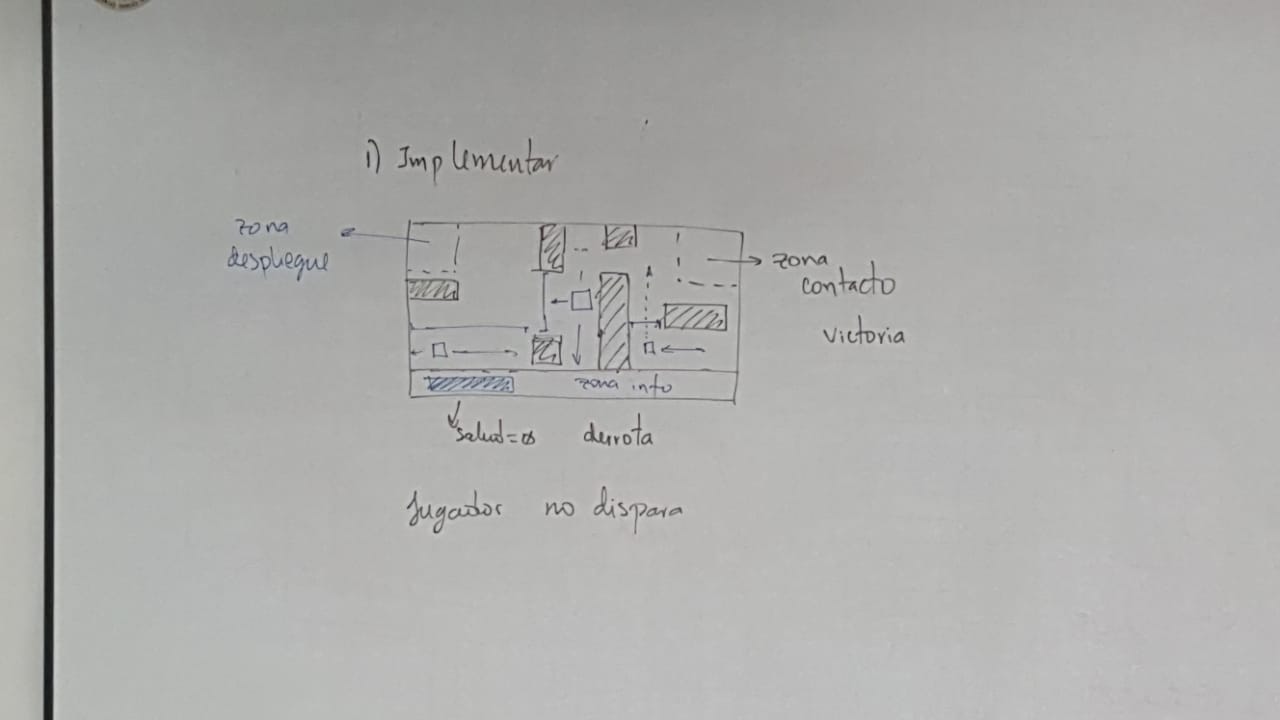 1) Implementar
zona
despliegue
zona
contacto
victoria
zona info
salud=0 derrota
Jugador no dispara